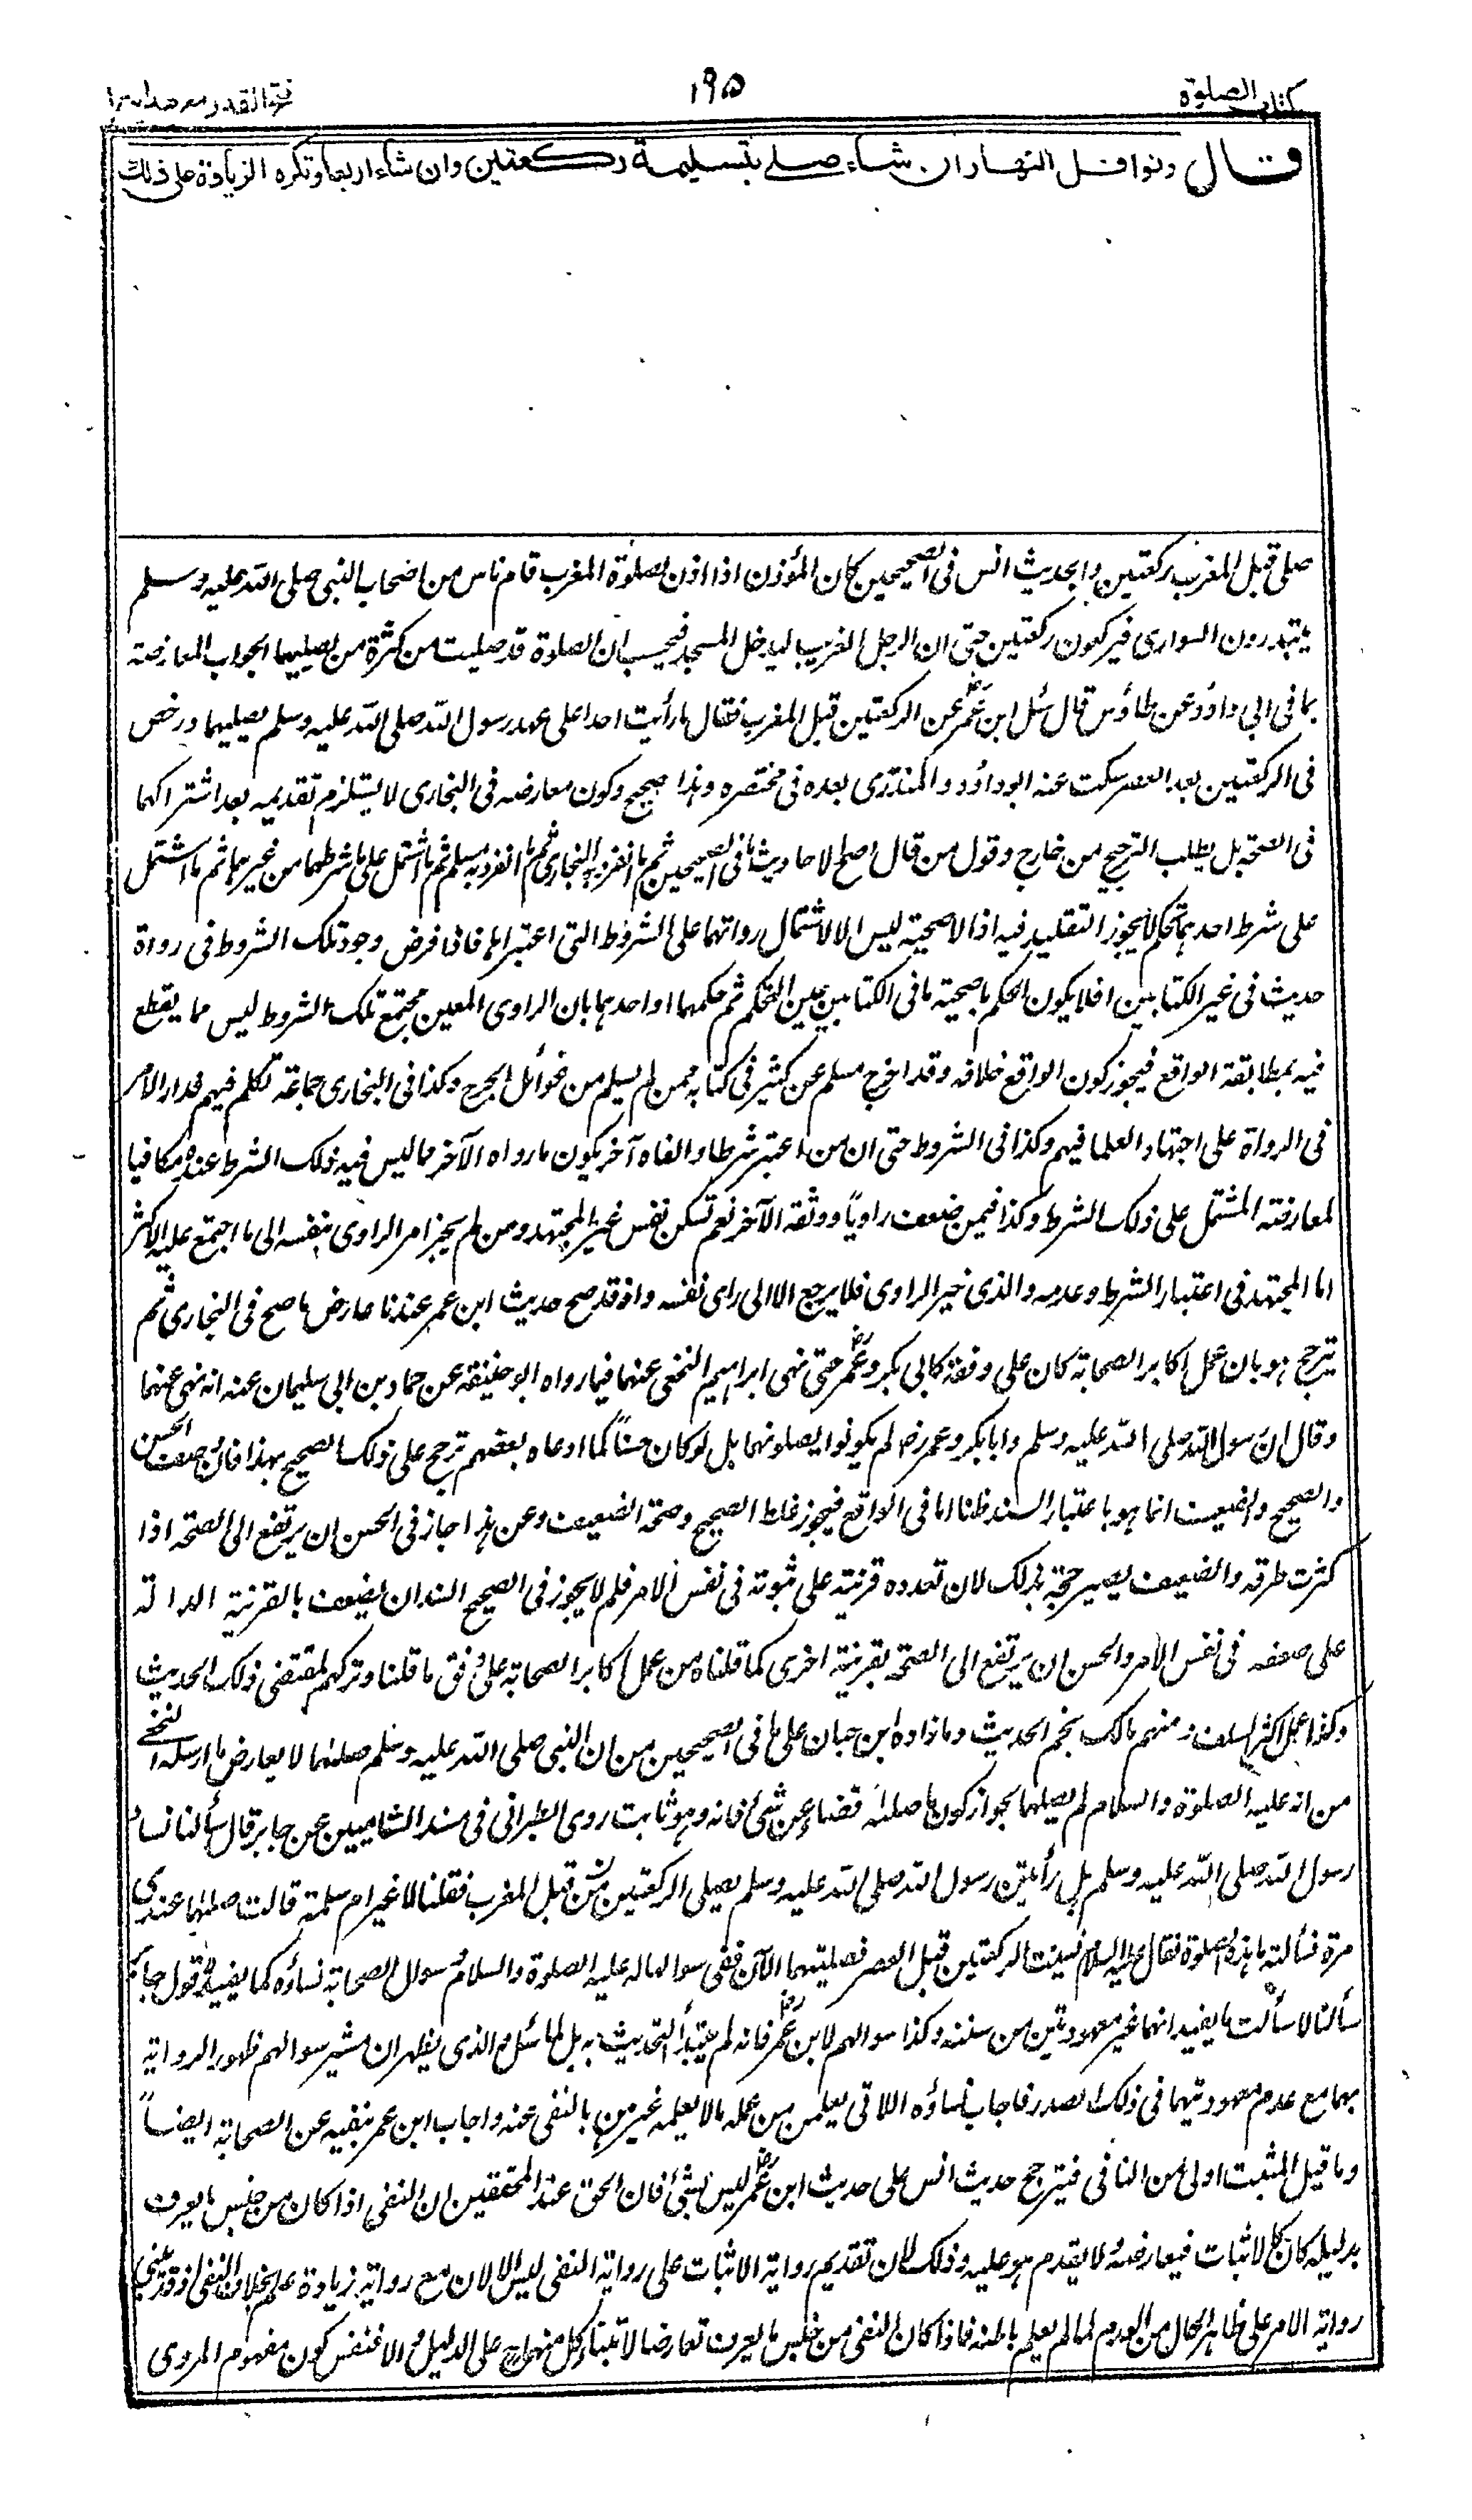 كتاب الصلوة
١٩٥
فتح القدير مع هدايه ج ١
قال ونوافل النهار ان شاء صلى بتسليمة ركعتين وان شاء اربعا وتكره الزيادة على ذلك
صلى قبل المغرب ركعتين والحديث انس فى الصحيحين كان المؤذن اذا اذن لصلوة المغرب قام ناس من اصحاب النبى صلى الله عليه وسلم
يبتدرون السوارى فيركعون ركعتين حتى ان الرجل الغريب ليدخل المسجد فيحسب ان الصلوة قد صليت من كثرة من يصليهما الجواب المعارضة
بما فى ابى داؤد عن طاؤس قال سئل ابن عمر رض عن الركعتين قبل المغرب فقال ما رأيت احدا على عهد رسول الله صلى الله عليه وسلم يصليهما ورخص
فى الركعتين بعد العصر سكت عنه ابو داؤد والمنذرى بعده فى مختصره وهذا صحيح وكون معارضه فى البخارى لا يستلزم تقديمه بعد اشتراكهما
فى الصحة بل يطلب الترجيح من خارج وقول من قال اصح الاحاديث ما فى الصحيحين ثم ما انفرد به البخارى ثم ما انفرد به مسلم ثم ما اشتمل على شرطهما من غيرهما ثم ما اشتمل
على شرط احدهما تحكم لا يجوز التقليد فيه اذ الاصحية ليس الا لاشتمال رواتهما على الشروط التى اعتبراها فاذا فرض وجود تلك الشروط فى رواة
حديث فى غير الكتابين افلا يكون الحكم باصحية ما فى الكتابين عين التحكم ثم حكمهما او احدهما بان الراوى المعين مجتمع تلك الشروط ليس مما يقطع
فيه بمطابقة الواقع فيجوز كون الواقع خلافه وقد اخرج مسلم عن كثير فى كتابه ممن لم يسلم من غوائل الجرح وكذا فى البخارى جماعة تكلم فيهم فدار الامر
فى الرواة على اجتهاد العلما فيهم وكذا فى الشروط حتى ان من اعتبر شرطا والغاه آخر يكون ما رواه الآخر مما ليس فيه ذلك الشرط عنده مكافيا
لمعارضته المشتمل على ذلك الشرط وكذا فيمن ضعف راويا ووثقه الآخر نعم تسكن نفس غير المجتهد ومن لم يخبر امر الراوى بنفسه الى ما اجتمع عليه الاكثر
اما المجتهد فى اعتبار الشرط وعدمه والذى خبر الراوى فلا يرجع الا الى راى نفسه واذ قد صح حديث ابن عمر عندنا عارض ما صح فى البخارى ثم
يترجح هو بان عمل اكابر الصحابة كان على وفقه كابى بكر وعمر رض حتى نهى ابراهيم النخعى عنهما فيما رواه ابو حنيفة عن حماد بن ابى سليمان عنه انه نهى عنهما
وقال ان رسول الله صلى الله عليه وسلم وابا بكر وعمر رض لم يكونوا يصلونهما بل لو كان حسنا كما ادعاه بعضهم ترجح على ذلك الصحيح بهذا فان وصف الحسن
والصحيح والضعيف انما هو باعتبار السند ظنا اما فى الواقع فيجوز غلط الصحيح وصحة الضعيف وعن هذا جاز فى الحسن ان يرتفع الى الصحة اذا
كثرت طرقه والضعيف يصير حجة بذلك لان تعدده قرينة على ثبوته فى نفس الامر فلم لا يجوز فى الصحيح السند ان يضعف بالقرينة الدالة
على ضعفه فى نفس الامر والحسن ان يرتفع الى الصحة بقرينة اخرى كما قلناه من عمل اكابر الصحابة على وفق ما قلنا وتركهم لمقتضى ذلك الحديث
وكذا عمل اكثر السلف ومنهم مالك نجم الحديث وما زاده ابن حبان على ما فى الصحيحين من ان النبى صلى الله عليه وسلم صلاهما لا يعارض ما ارسله النخعى
من انه عليه الصلوة والسلام لم يصلهما لجواز كون ما صلاه قضاء عن شئ فاته وهو ثابت روى الطبرانى فى مسند الشاميين عن جابر قال سألنا نساء
رسول الله صلى الله عليه وسلم هل رأيتن رسول الله صلى الله عليه وسلم يصلى الركعتين قبل المغرب فقلن لا غير ام سلمة قالت صلاهما عندى
مرة فسألته ما هذه الصلوة فقال عليه السلام نسيت الركعتين قبل العصر فصليتهما الآن ففى سوالها له عليه الصلوة والسلام وسوال الصحابة نساؤه كما يفيده قول جابر
سألنا لا سألت ما يفيد انهما غير معهودتين من سننه وكذا سوالهم لابن عمر رض فانه لم يبتدأ التحديث به بل لما سئل والذى يظهر ان مشير سوالهم ظهور الرواية
بهما مع عدم معهوديتهما فى ذلك الصدر فاجاب نساؤه اللاتى يعلمن من عمله ما لا يعلمه غيرهن بالنفى عنه واجاب ابن عمر بنفيه عن الصحابة ايضا
وما قيل المثبت اولى من النافى فيترجح حديث انس على حديث ابن عمر رض ليس بشئ فان الحق عند المحققين ان النفى اذا كان من جنس ما يعرف
بدليله كان كالاثبات فيعارضه ولا يقدم هو عليه وذلك لان تقديم رواية الاثبات على رواية النفى ليس الا لان مع روايته زيادة علم بخلاف النفى اذ قد يبنى
رواية الامر على ظاهر الحال من العدم لما لم يعلم باطنه فاذا كان النفى من جنس ما يعرف تعارضا لابتناء كل منهما على الدليل والا فنفس كون مفهوم المروى